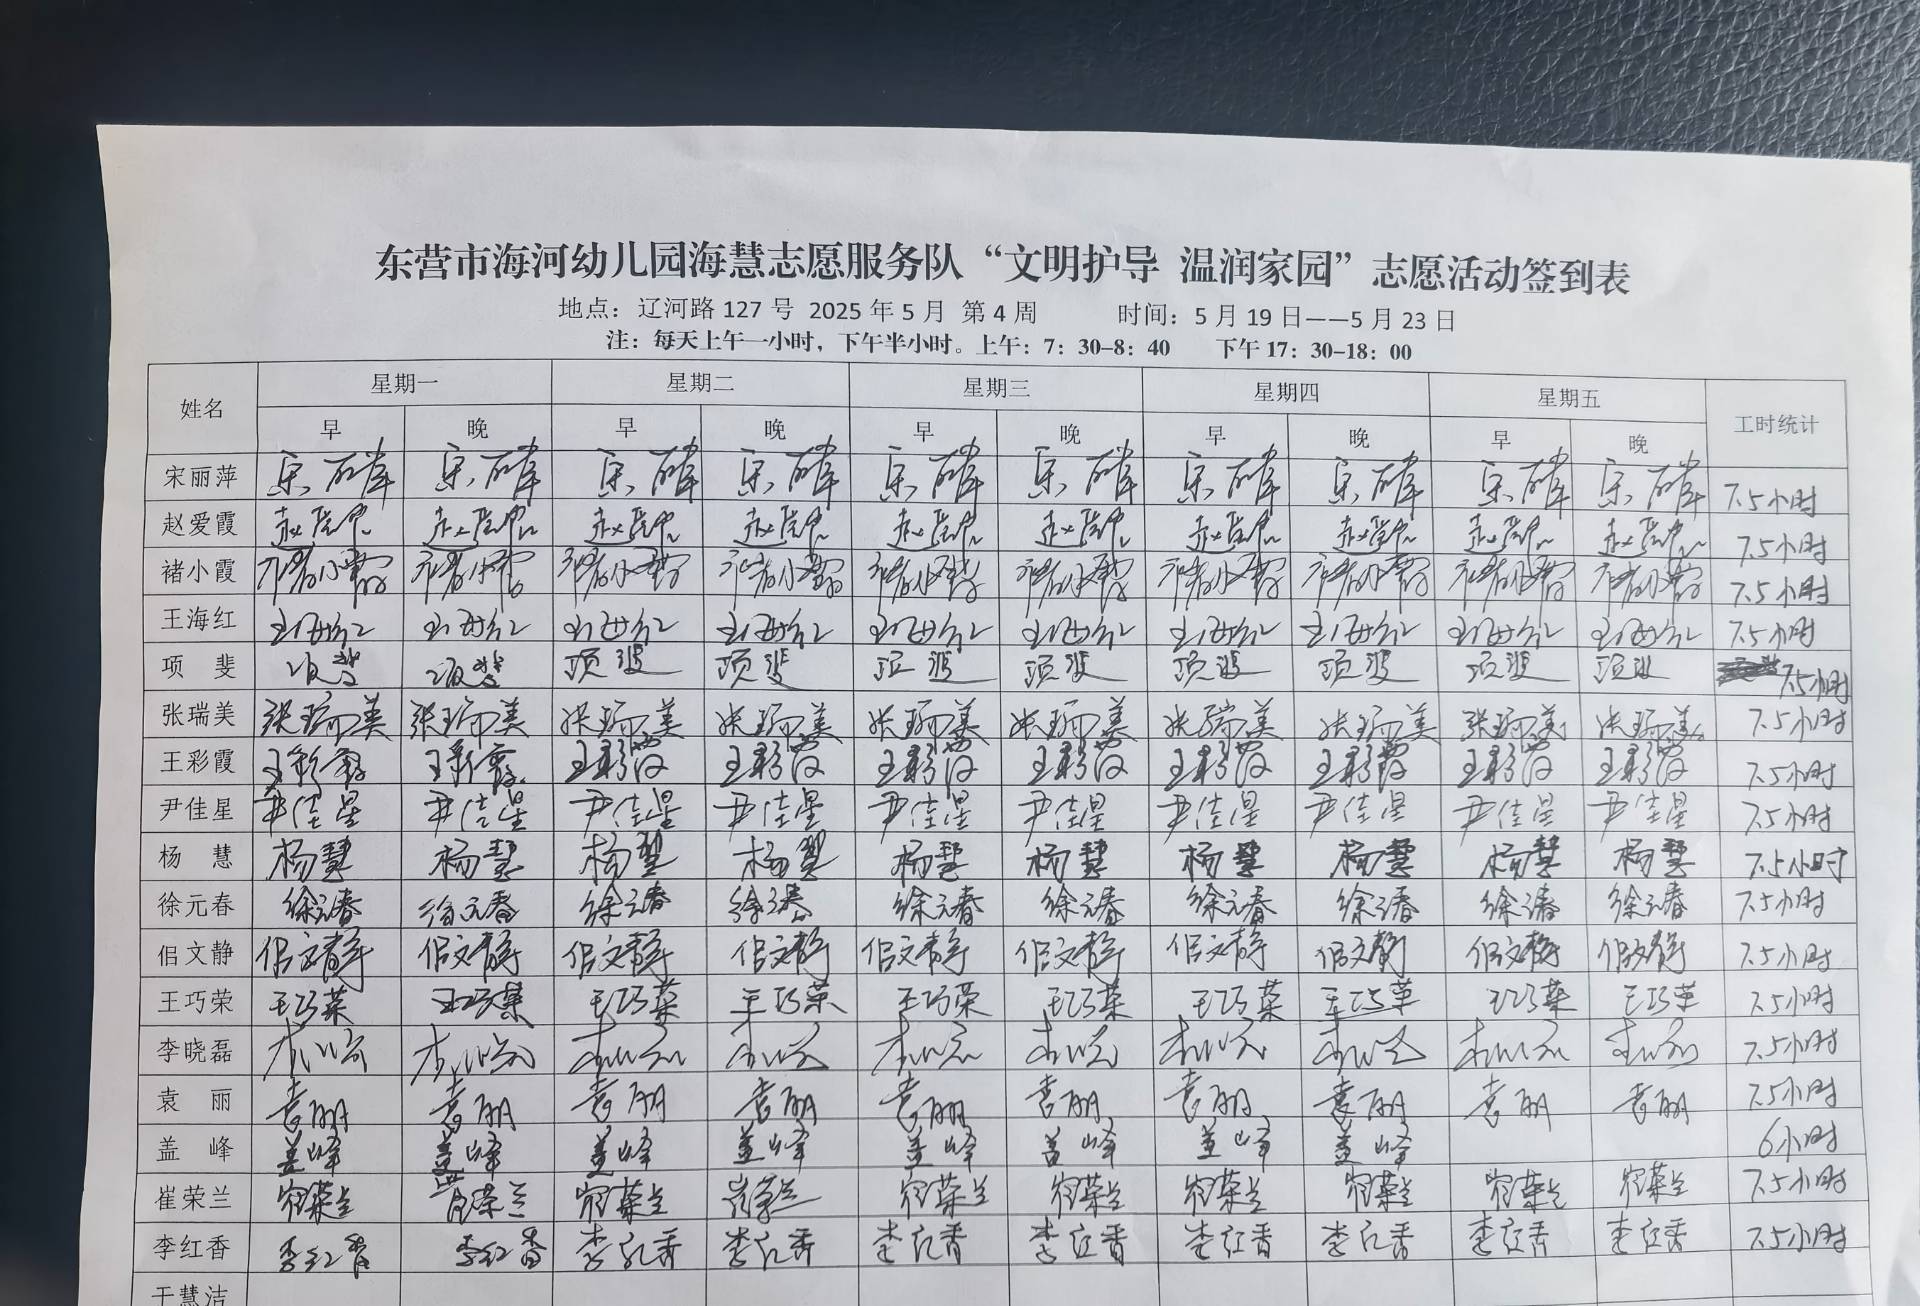 东营市海河幼儿园海慧志愿服务队“文明护导 温润家园”志愿活动签到表
地点：辽河路 127 号 2025 年 5 月 第 4 周 时间：5 月 19 日——5 月 23 日
注：每天上午一小时，下午半小时。上午：7：30-8：40 下午 17：30-18：00
姓名 星期一 星期二 星期三 星期四 星期五 工时统计
早 晚 早 晚 早 晚 早 晚 早 晚
宋丽萍 宋丽萍 宋丽萍 宋丽萍 宋丽萍 宋丽萍 宋丽萍 宋丽萍 宋丽萍 宋丽萍 宋丽萍 7.5小时
赵爱霞 赵爱霞 赵爱霞 赵爱霞 赵爱霞 赵爱霞 赵爱霞 赵爱霞 赵爱霞 赵爱霞 赵爱霞 7.5小时
褚小霞 褚小霞 褚小霞 褚小霞 褚小霞 褚小霞 褚小霞 褚小霞 褚小霞 褚小霞 褚小霞 7.5小时
王海红 王海红 王海红 王海红 王海红 王海红 王海红 王海红 王海红 王海红 王海红 7.5小时
项 斐 项斐 项斐 项斐 项斐 项斐 项斐 项斐 项斐 项斐 项斐 7.5小时
张瑞美 张瑞美 张瑞美 张瑞美 张瑞美 张瑞美 张瑞美 张瑞美 张瑞美 张瑞美 张瑞美 7.5小时
王彩霞 王彩霞 王彩霞 王彩霞 王彩霞 王彩霞 王彩霞 王彩霞 王彩霞 王彩霞 王彩霞 7.5小时
尹佳星 尹佳星 尹佳星 尹佳星 尹佳星 尹佳星 尹佳星 尹佳星 尹佳星 尹佳星 尹佳星 7.5小时
杨 慧 杨慧 杨慧 杨慧 杨慧 杨慧 杨慧 杨慧 杨慧 杨慧 杨慧 7.5小时
徐元春 徐元春 徐元春 徐元春 徐元春 徐元春 徐元春 徐元春 徐元春 徐元春 徐元春 7.5小时
佀文静 佀文静 佀文静 佀文静 佀文静 佀文静 佀文静 佀文静 佀文静 佀文静 佀文静 7.5小时
王巧荣 王巧荣 王巧荣 王巧荣 王巧荣 王巧荣 王巧荣 王巧荣 王巧荣 王巧荣 王巧荣 7.5小时
李晓磊 李晓磊 李晓磊 李晓磊 李晓磊 李晓磊 李晓磊 李晓磊 李晓磊 李晓磊 李晓磊 7.5小时
袁 丽 袁丽 袁丽 袁丽 袁丽 袁丽 袁丽 袁丽 袁丽 袁丽 袁丽 7.5小时
盖 峰 盖峰 盖峰 盖峰 盖峰 盖峰 盖峰 盖峰 盖峰 6小时
崔荣兰 崔荣兰 崔荣兰 崔荣兰 崔荣兰 崔荣兰 崔荣兰 崔荣兰 崔荣兰 崔荣兰 崔荣兰 7.5小时
李红香 李红香 李红香 李红香 李红香 李红香 李红香 李红香 李红香 李红香 李红香 7.5小时
于慧洁